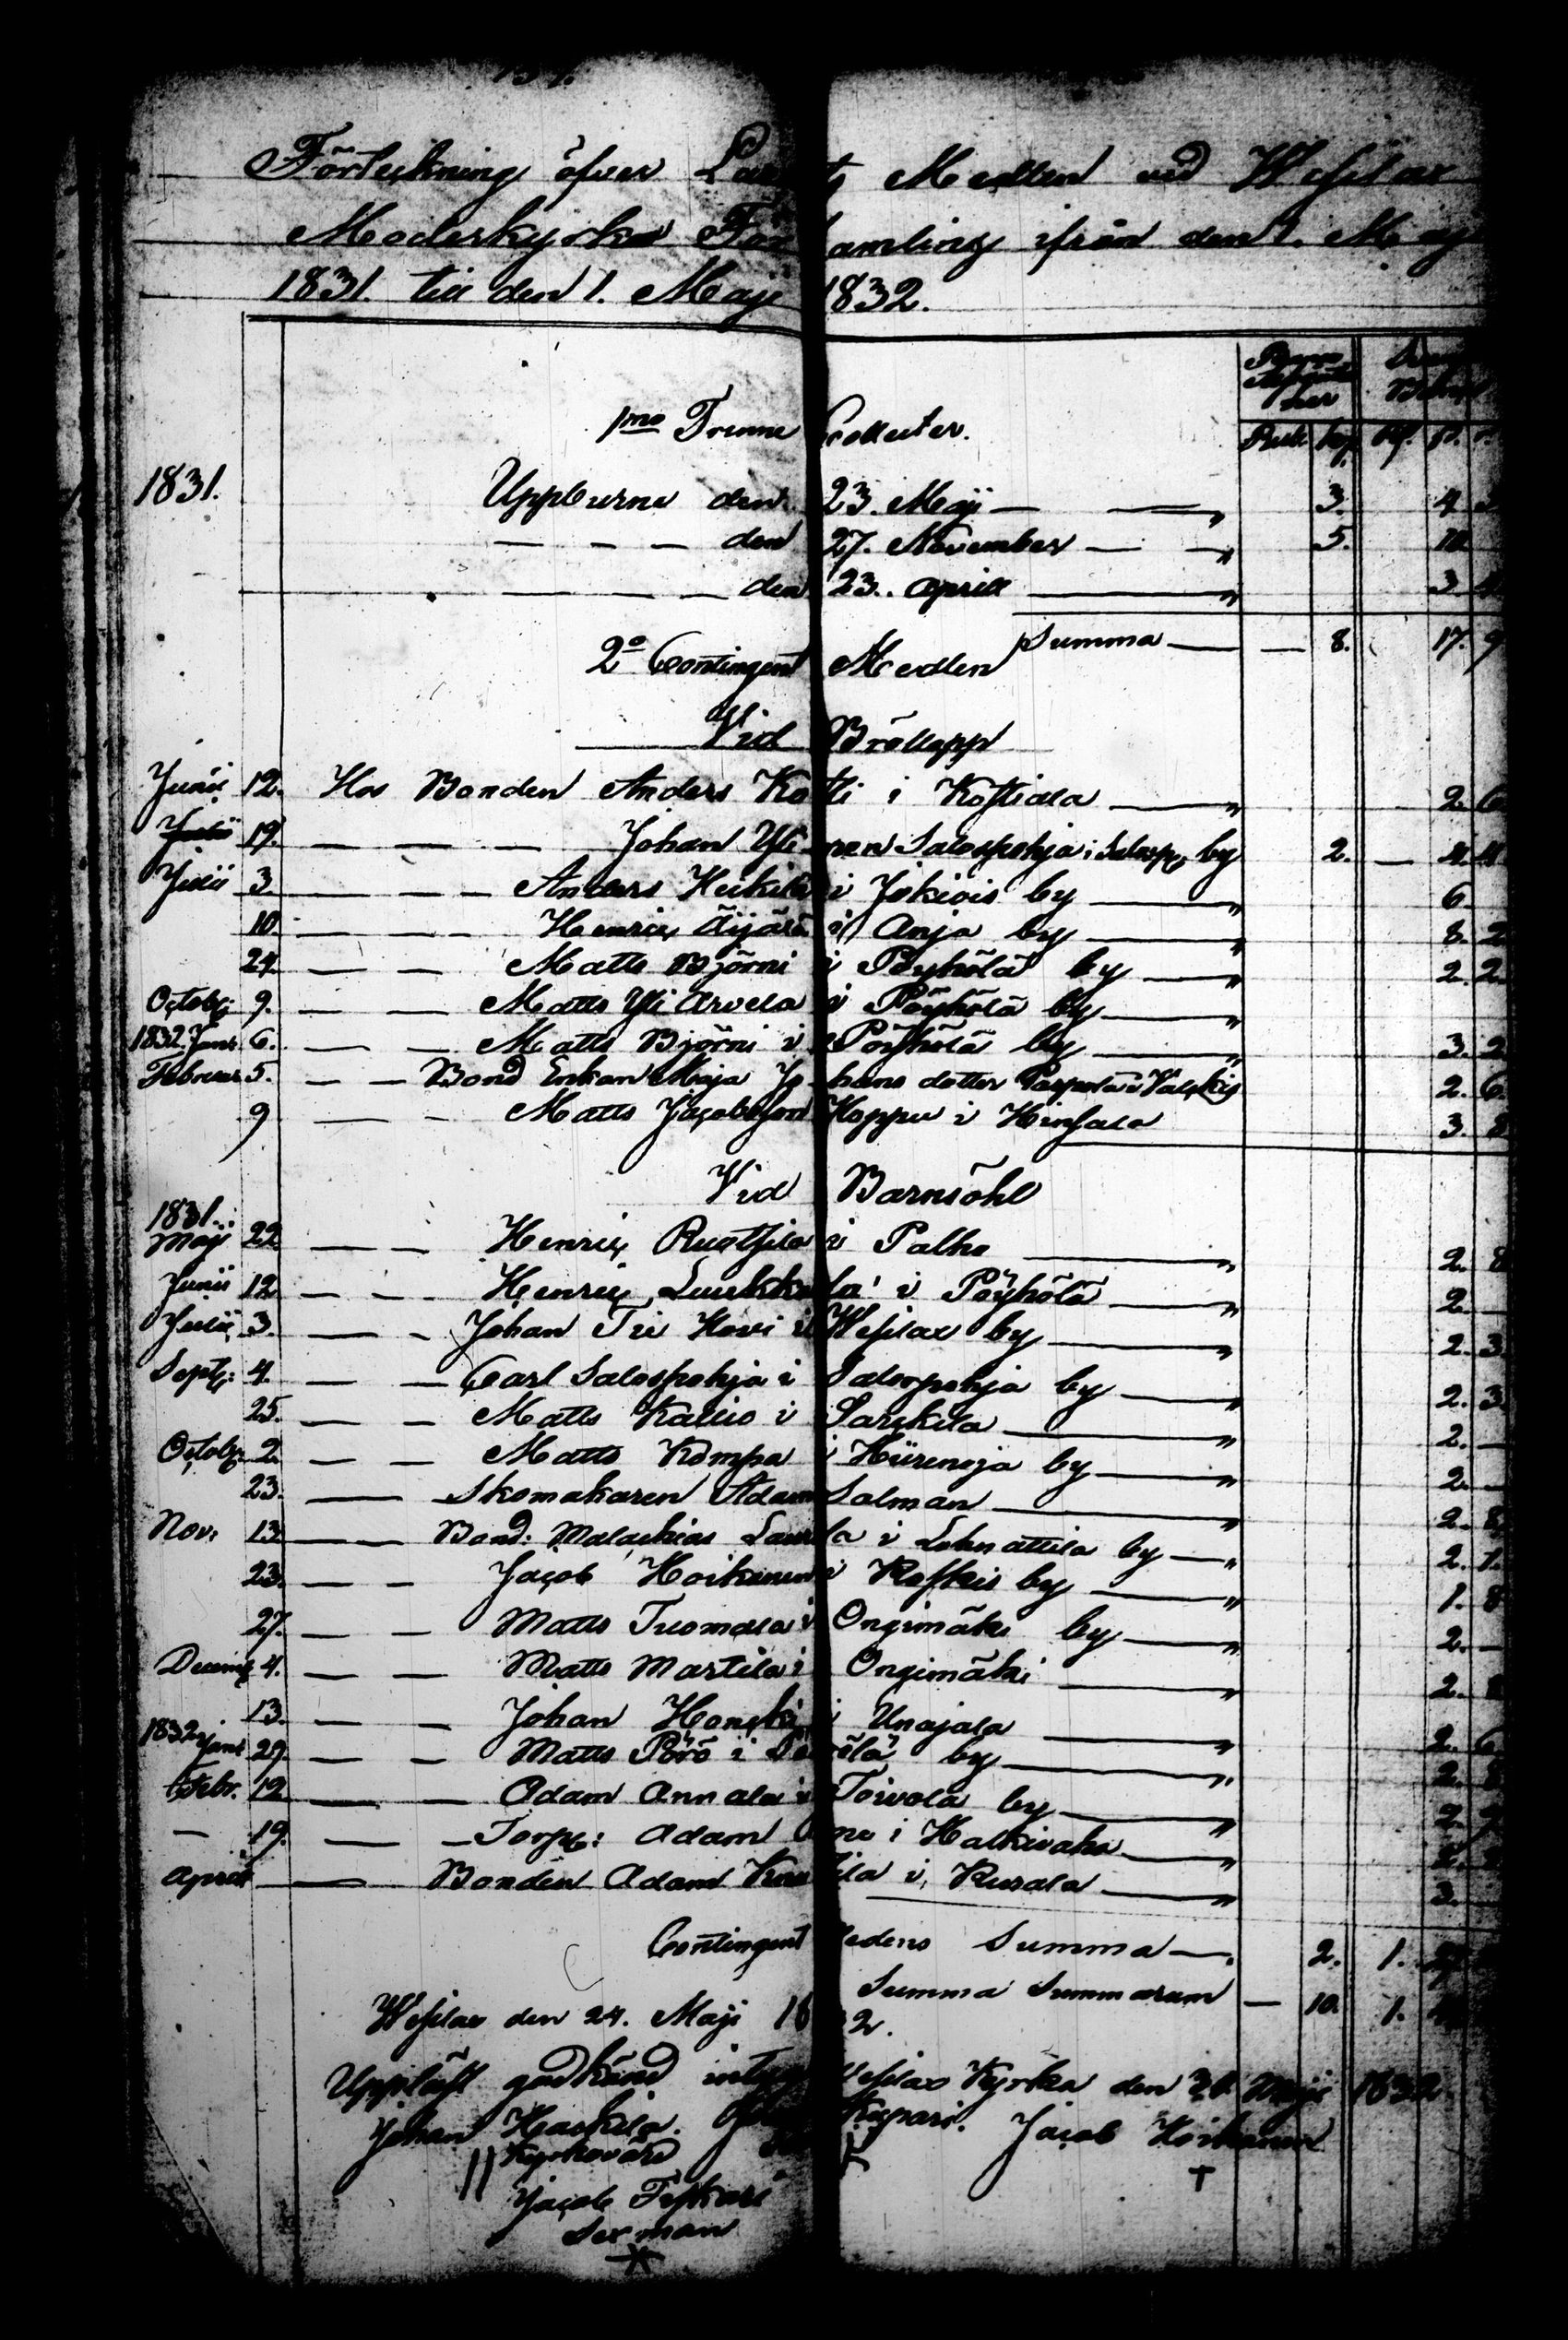 Förteckning öfver Medlen ved Wesilax
Moderkyrko amling ifrån den 1. Maji
1831. till den 1. Maji 1832.
1mo Trenne Collecter.
Rub. kop.
1831. Uppburne den 23. Maji — „ 3. 4
— — — den 27. November — „ 5. 10
— — — den 23. April — „ 3
Summa — — 8. 17. 9
2o Contingent Medlen
Vid Bröllopp
Junii 12. Hos Bonden Anders i Kostiala — „ 2. 6
19. — — — Johan Salospohja i by 2. — 4.
Julii 3. — — — Anders Heikilä i Jokiois by — „ 6.
10. — — — Henric Äijärä i Anja by — „ 8. 2
24. — — — Matts Björni i Pöyhölä by — „ 2. 2
Octob: 9. — — — Matts Yli Arvela i Pöyhölä by — „
1832 Janr. 6. — — — Matts Björni i Pöyhölä by — „ 3. 2
Februar. 5. — — Bond Enkan Maja Johans dotter 2. 6.
9 — — — Matts Jacobsson Hoppu i Hinsala 3. 8
Vid Barnsöhl
1831.
Maji 22 — — Henric Ruotsila i Palho — „ 2. 8
Junii 12 — — Henric i Pöyhölä — „ 2. —
Julii 3. — — Johan Hovi i Wesilax by — „ 2. 3.
Septb: 4. — — Carl Salospohja i Salospohja by — „ 2. 3.
25. — — Matts Kallio i Sarskila — „ 2. —
Octobr. 2. — — Matts Kompa i Hiirenoja by — „ 2. —
23. — — Skomakaren Adam Salman — „ 2. 8
Nov: 13. — — Bond: Malachias Laurila i by — „ 2. 1.
23. — — Jacob Hoikanen i Koskis by — „ 1. 8
27. — — Matts Tuomala i Ongimäki by — „ 2. —
Decemb 4. — — Matts Martila i Ongimäki — „ 2. 8
13. — — Johan i Unajala — „ 2. 6
1832 Janr 29. — — Matts Pörö i by — „ 2. 8
Febr. 12 — — Adam Annala i Toivola by — „ 2.
— 19. — — Torp: Adam i Halkivaha — „ 2.
April — Bonden Adam i Kurala — „ 3.
Contingent Medens Summa — 2. 1.
Summa Summarum — 10. 1.
Wesilax den 24. Maji 1832.
Uppläst godkänd Wesilax Kyrka den 30. Maji 1832.
Johan Haskila. Kupari. Jacob Hoikanen
Kyrkovärd
Jacob
Sexman